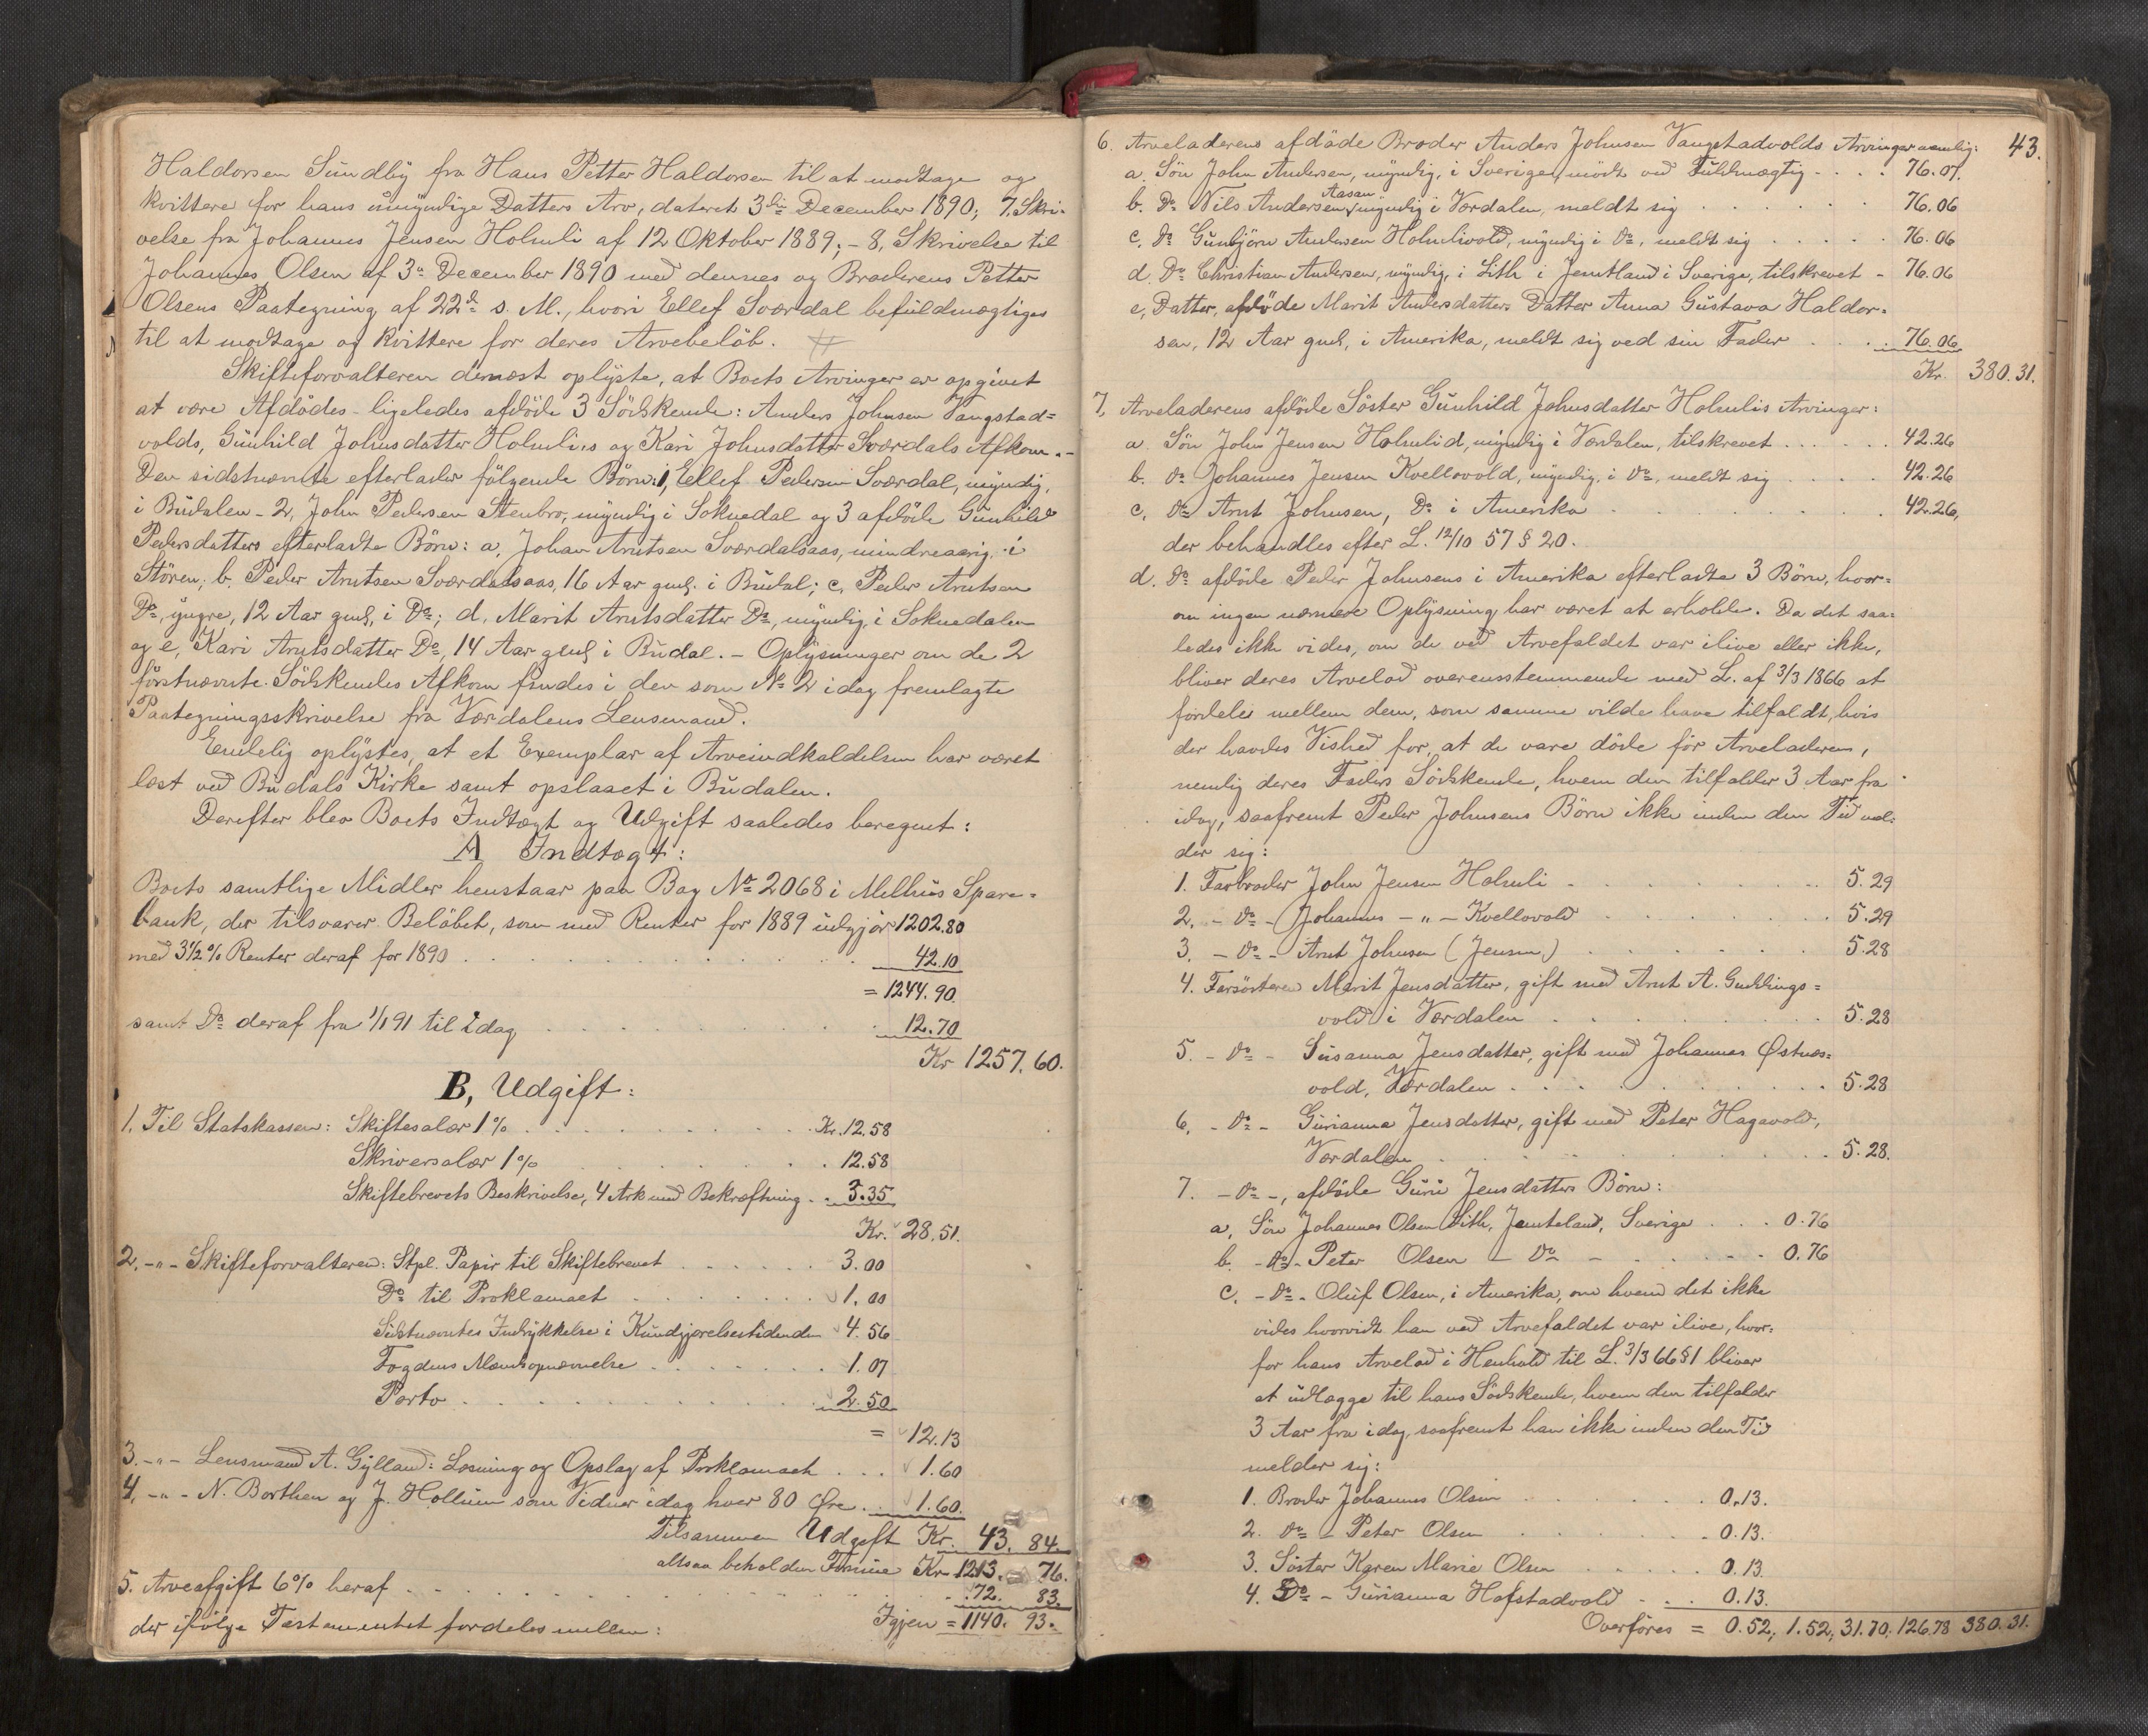 Haldorsen Sundby fra Hans Petter Haldorsen til at modtage og
kvittere for hans umyndige Datters Arv, dateret 3die December 1890; 7. Skri-
velse fra Johannes Jensen Holmli af 12 Oktober 1889; - 8, Skrivelse til
Johannes Olsen af 3e December 1890 med dennes og Broderens Petter
Olsens Paategning af 22de s. M., hvori Ellef Sværdal befuldmægtiges
til at modtage og kvittere for deres Arvebeløb.
Skifteforvalteren dernæst oplyste, at Boets Arvinger er opgivet
at være Afdødes ligeledes afdøde 3 Södskende: Anders Johnsen Vangstad=
volds, Gunhild Johnsdatter Holmlis og Kari Johnsdatter Sværdals Afkom. -
Den sidstnævnte efterlader følgende Börn: 1, Ellef Pedersen Sværdal, myndig,
i Budalen - 2, John Pedersen Stenbro, myndig i Soknedal og 3 afdöde Gunhild
Pedersdatters efterladte Börn: a, Johan Arntsen Sværdalsaas, mindreaarig, i
Stören; b. Peder Arntsen Sværdalsaas, 16 Aar gml. i Budal; c, Peder Arntsen
Do, yngre, 12 Aar gml, i Do; d, Marit Arntsdatter Do, myndig, i Soknedalen
og e, Kari Arntsdatter Do, 14 Aar gml i Budal. - Oplysninger om de 2
förstnævnte Södskendes Afkom findes i den som No 2 idag fremlagte
Paategningsskrivelse fra Værdalens Lensmand.
Endelig oplystes, at et Exemplar af Arveindkaldelsen har været
læst ved Budals Kirke samt opslaaet i Budalen.
Derefter blev Boets Indtægt og Udgift saaledes beregnet:
A Indtægt:
Boets samtlige Midler henstaar paa Bog No 2068 i Melhus Spare=
bank, der tilsvarer Beløbet, som med Renter for 1889 udgjør 1202.80
med 3 1/2 % Renter deraf for 1890 . . . 42.10
= 1244.90.
samt Do deraf fra 1/1 91 til Idag . . . 12.70
Kr 1257.60.
B, Udgift:
1. Til Statskassen: Skiftesalær 1 % . . . Kr. 12.58
Skriversalær 1 % . . . 12.58
Skiftebrevets Beskrivelse, 4 Ark med Bekræftning . . 3.35
Kr. 28.51.
2. -"- Skifteforvalteren: Stpl. Papir til Skiftebrevet . . . 3.00
Do til Proklamaet . . . 1.00
Sidstnævntes Indrykkelse i Kundgjørelsestidenden 4.56
Fogdens Mændsopnævnelse . . . 1.07
Porto . . . 2.50
= 12.13
3. -"- Lensmand A. Gylland: Læsning og Opslag af Proklamaet . . . 1.60
4. -"- N. Borthen og J. Hollum som Vidner idag hver 80 Øre . . 1.60.
Tilsammen Udgift Kr. 43.84.
altsaa beholden Formue Kr 1213.76.
5. Arveafgift 6% heraf . . . 72.83.
der ifølge Testamentet fordeles mellem: Igjen = 1140.93.
43.
6. Arveladerens afdöde Broder Anders Johnsen Vangstadvolds Arvinger nemlig:
a. Sön John Andersen, myndig, i Sverige, mödt ved Fuldmægtig . . . 76.07.
b. Do Nils Andersen Aasan, myndig i Værdalen, meldt sig . . . 76.06
c, Do Gunbjörn Andersen Holmlivold, myndig i Do, meldt sig . . . 76.06
d. Do Christian Andersen, myndig, i Lith i Jemtland i Sverige, tilskrevet - 76.06
e, Datter, afdöde Marit Andersdatters Datter Anna Gustava Haldor=
sen, 12 Aar gml, i Amerika, meldt sig ved sin Fader . . . 76.06
Kr. 380.31.
7, Arveladerens afdöde Söster Gunhild Johnsdatter Holmlis Arvinger:
a. Sön John Jensen Holmlid, myndig i Værdalen, tilskrevet . . . 42.26
b. Do Johannes Jensen Kvellovold, myndig, i Do, meldt sig . . . 42.26
c, Do Arnt Johnsen, Do i Amerika . . . 42.26,
der behandles efter L. 12/10 57 § 20.
d. Do afdöde Peder Johnsens i Amerika efterladte 3 Börn, hvor=
om ingen nærmere Oplysning har været at erholde. Da det saa=
ledes ikke vides, om de ved Arvefaldet var ilive eller ikke,
bliver deres Arvelod overensstemmende med L. af 3/3 1866 at
fordeles mellem dem, som samme vilde have tilfaldt, hvis
der havdes Vished for, at de vare döde för Arveladeren,
nemlig deres Faders Södskende, hvem den tilfalder 3 Aar fra
idag, saafremt Peder Johnsens Börn ikke inden den Tid mel=
der sig:
1. Farbroder John Jensen Holmli . . . 5.29
2. - Do - Johannes - " - Kvellovold . . . 5.29
3. - Do - Arnt Johnsen (Jensen) . . . 5.28
4. Farsösteren Marit Jensdatter, gift med Arnt A. Guddings=
vold i Værdalen . . . 5.28
5. - Do - Susanna Jensdatter, gift med Johannes Østnæs=
vold, Værdalen . . . 5.28
6, - Do - Gurianna Jensdatter, gift med Peter Hagavold,
Værdalen . . . 5.28.
7. - Do -, afdöde Guru Jensdatters Börn:
a, Sön Johannes Olsen Lith, Jemteland, Sverige . . . 0.76
b. - Do - Peter Olsen - Do - . . . 0.76
c, - Do - Oluf Olsen, i Amerika, om hvem det ikke
vides hvorvidt han ved Arvefaldet var ilive, hvor=
for hans Arvelod i Henhold til L. 3/3 66 § 1 bliver
at udlægge til hans Södskende, hvem den tilfalder
3 Aar fra idag, saafremt han ikke inden den Tid
melder sig:
1. Broder Johannes Olsen . . . 0.13.
2. Do - Peter Olsen . . . 0.13.
3. Söster Karen Marie Olsen . . . 0.13.
4. Do - Gurianna Hofstadvold . . . 0.13.
Overföres = 0.52; 1.52; 31.70; 126.78 380.31.